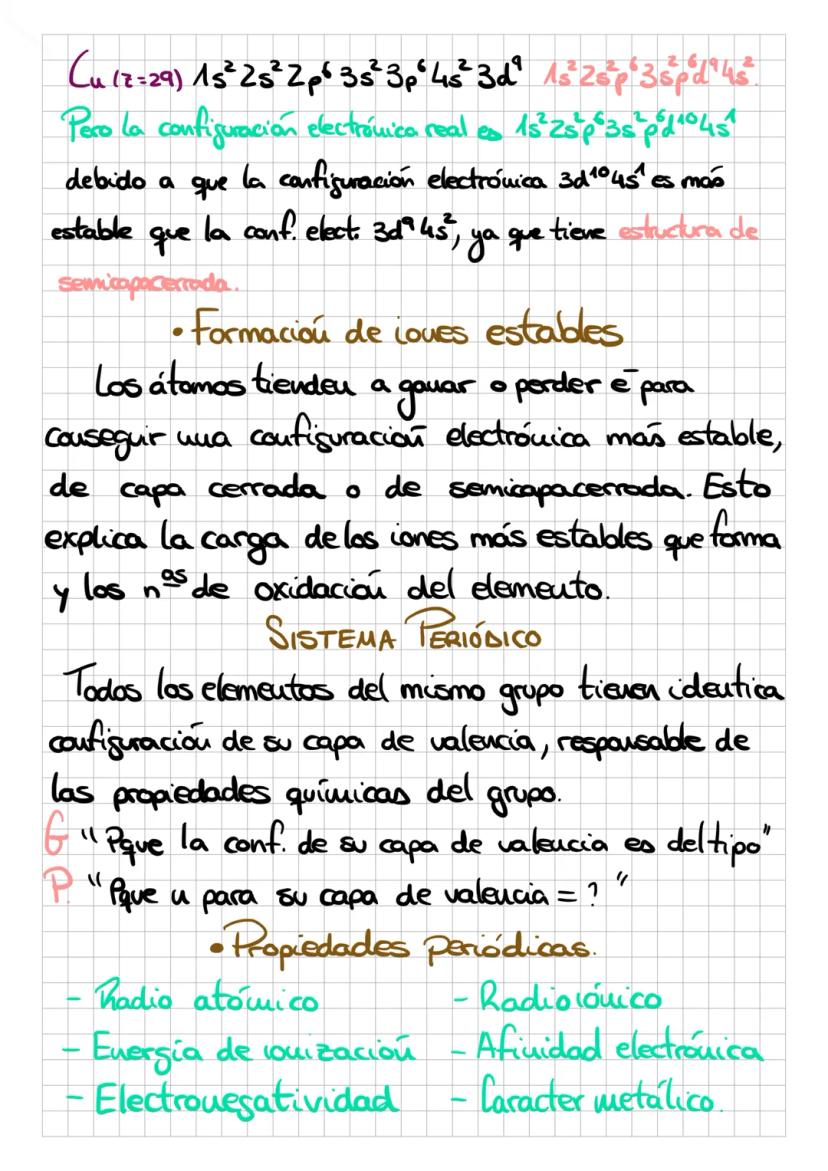 Cu (z=29) 1s² 2s² 2p⁶ 3s² 3p⁶ 4s² 3d⁹ 1s² 2s² p⁶ 3s² p⁶ d⁹ 4s².
Pero la configuración electrónica real es 1s² 2s² p⁶ 3s² p⁶ d¹⁰ 4s¹
debido a que la configuración electrónica 3d¹⁰ 4s¹ es más
estable que la conf. elect. 3d⁹ 4s², ya que tiene estructura de
semicapacerrada.
• Formación de iones estables
Los átomos tienden a ganar o perder e⁻ para
conseguir una configuración electrónica más estable,
de capa cerrada o de semicapacerrada. Esto
explica la carga de los iones más estables que forma
y los nºs de oxidación del elemento.
SISTEMA PERIÓDICO
Todos los elementos del mismo grupo tienen identica
configuración de su capa de valencia, responsable de
las propiedades químicas del grupo.
G "Pque la conf. de su capa de valencia es del tipo"
P. "Pque n para su capa de valencia = ? "
• Propiedades periódicas.
- Radio atómico - Radio iónico
- Energía de ionización - Afinidad electrónica
- Electronegatividad - Caracter metálico.